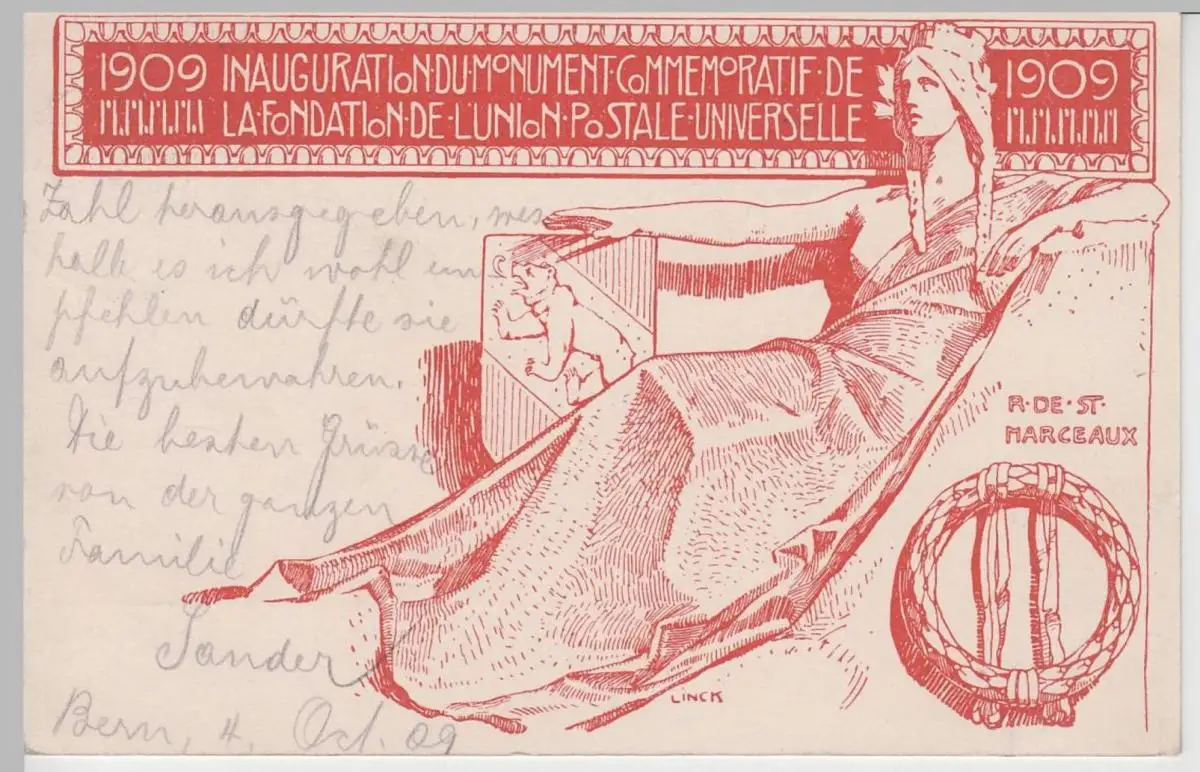 1909 INAUGURATION·DU·MONUMENT·COMMEMORATIF·DE 1909
LA·FONDATION·DE·L'UNION·POSTALE·UNIVERSELLE
Zahl herausgegeben, wes
halb es ich wohl em
pfehlen dürfte sie
aufzubewahren.
Die besten Grüsse
von der ganzen
Familie
Sander
Bern, 4. Oct. 09
R·DE·ST·
MARCEAUX
LINCK